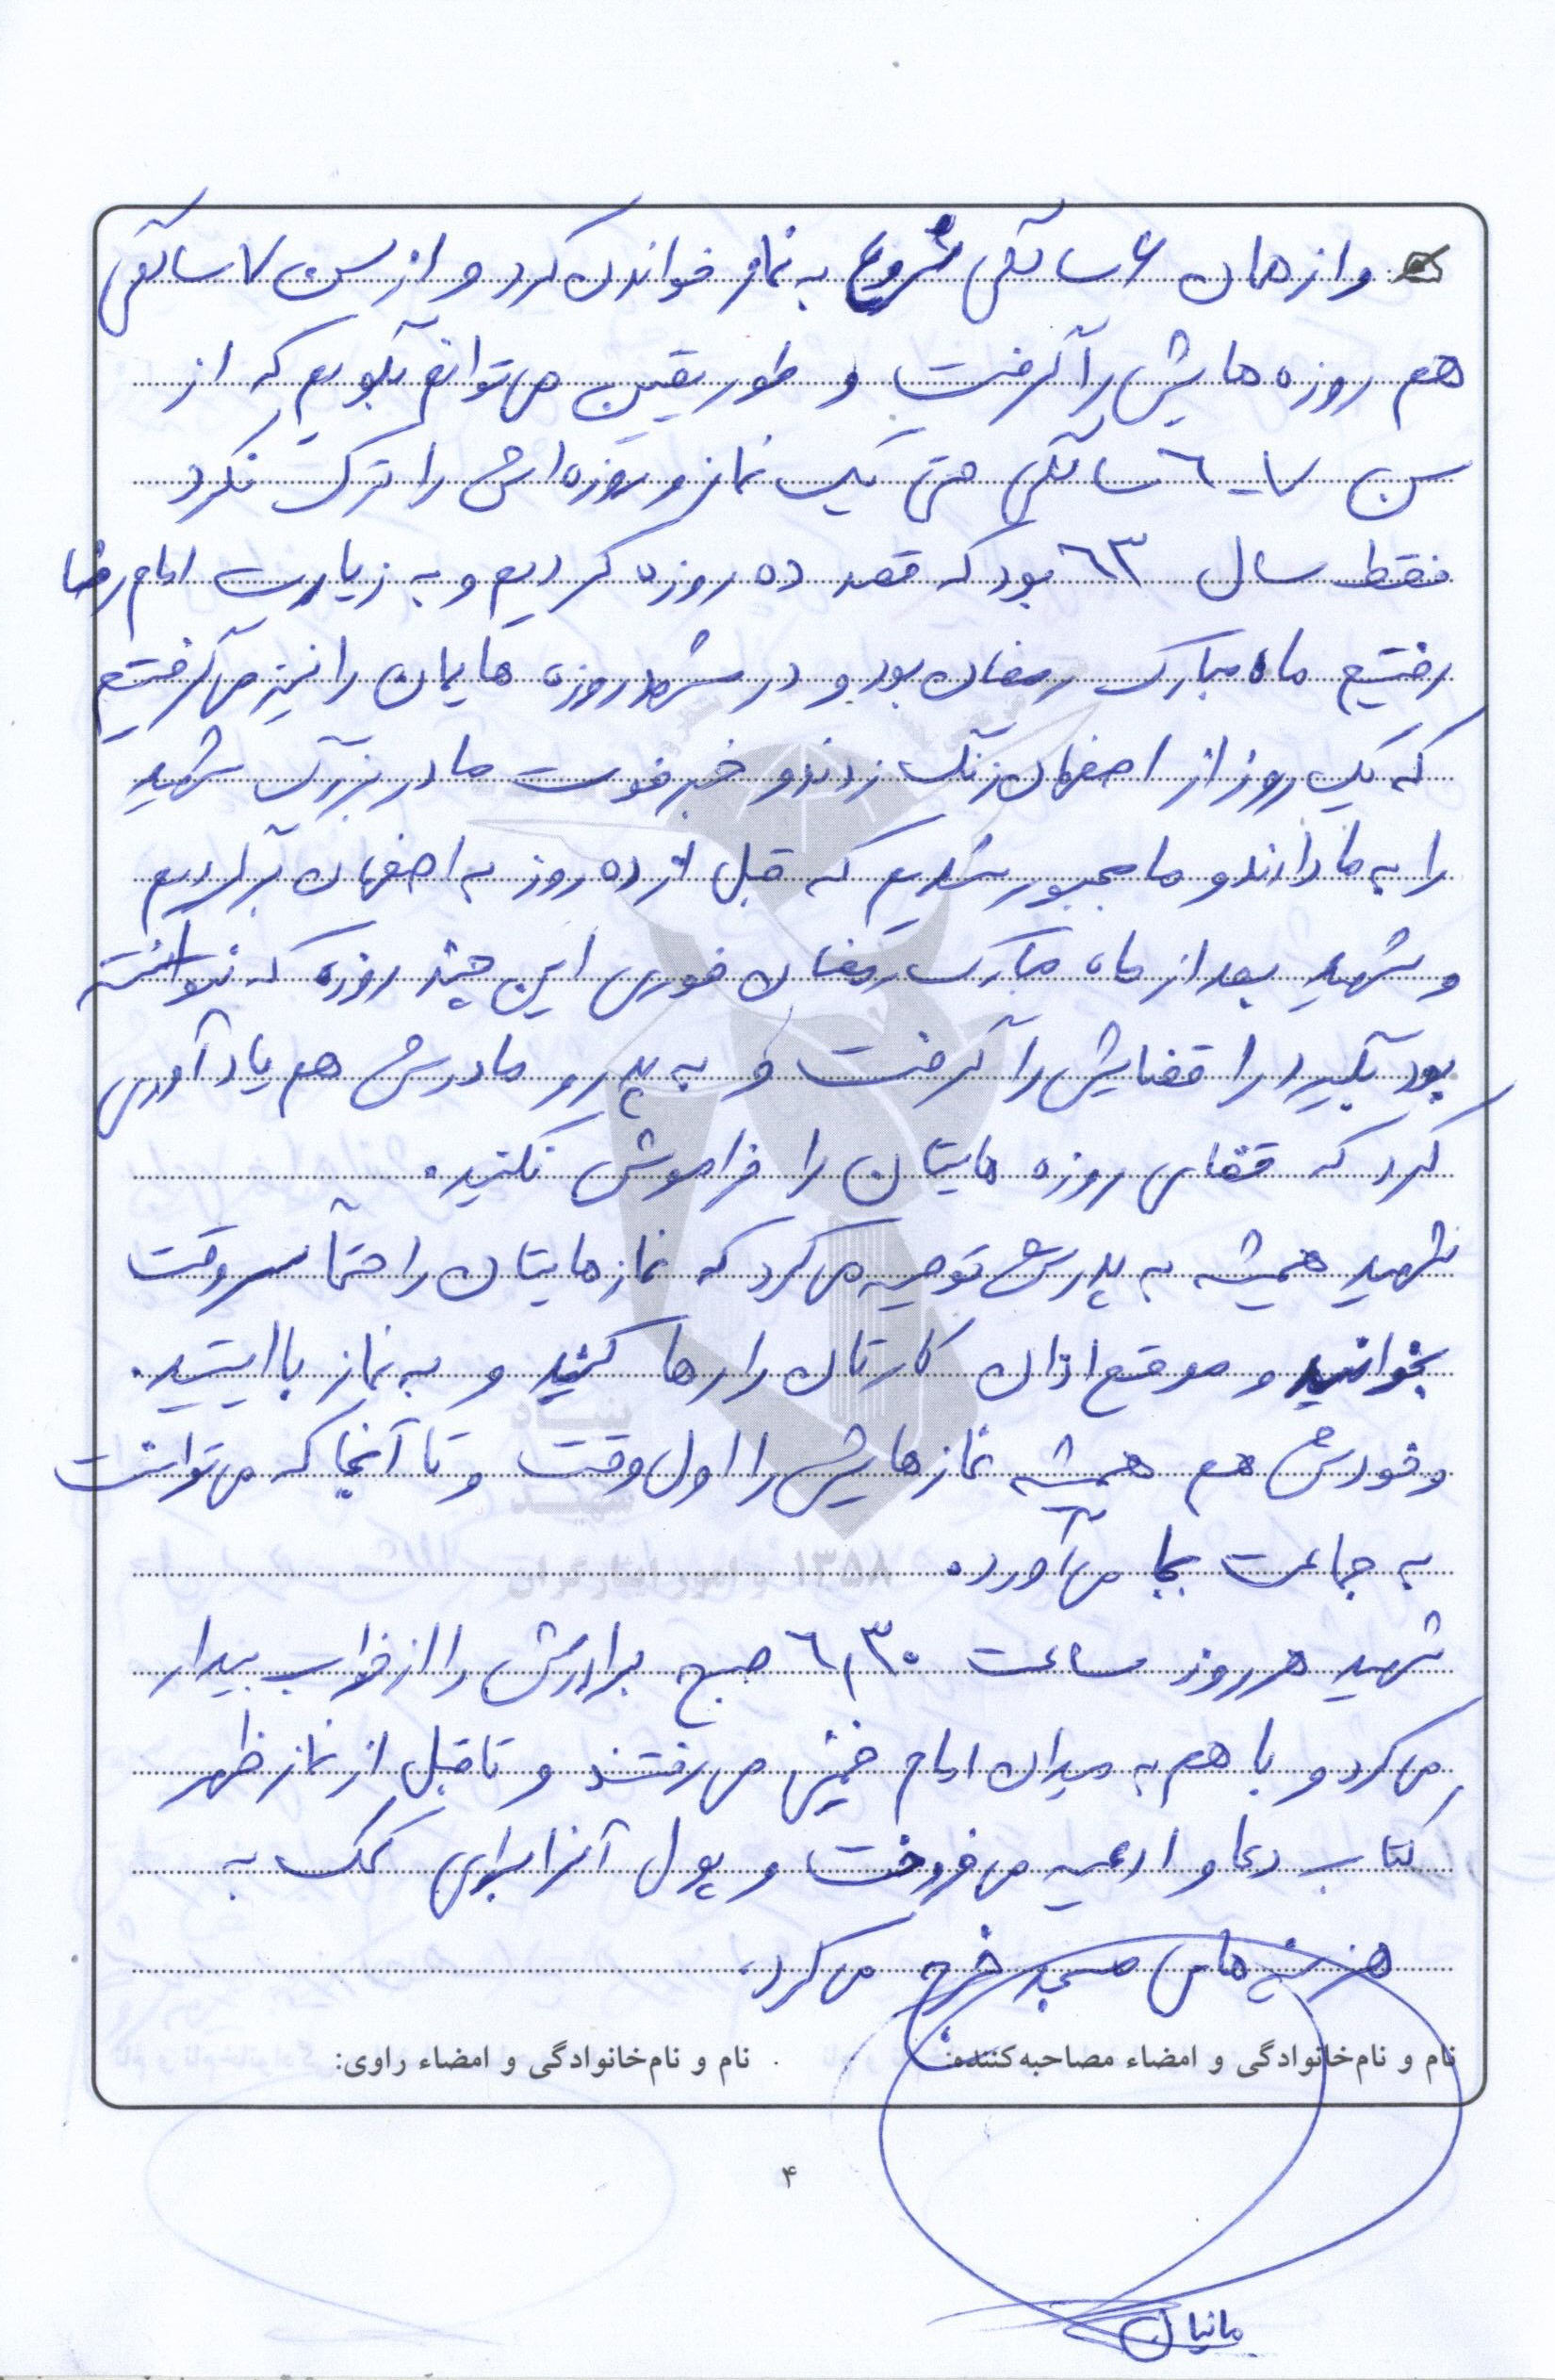 و از همان ۶ سالگی شروع به نماز خواندن کرد و از سن ۷ سالگی
هم روزه هایش را گرفت و طور یقین می توانم بگویم که از
سن ۷-۶ سالگی حتی یک نماز و روزه اش را ترک نکرد
فقط سال ۶۳ بود که قصد ده روزه کردیم و به زیارت امام رضا
رفتیم ماه مبارک رمضان بود و در مشهد روزه هایمان را نیز می گرفتیم
که یک روز از اصفهان زنگ زدند و خبر فوت مادر بزرگ شهید
را به ما دادند و ما مجبور شدیم که قبل از ده روز به اصفهان برگردیم
و شهید بعد از ماه مبارک رمضان فوری این چند روزه که نتوانسته
بود بگیرد را قضایش را گرفت و به پدر و مادرش هم یادآوری
کرد که قضای روزه هایتان را فراموش نکنید.
شهید همیشه به پدرش توصیه می کرد که نمازهایتان را حتماً سر وقت
بخوانید و موقع اذان کارتان را رها کنید و به نماز باایستید.
و خودش هم همیشه نمازهایش را اول وقت و تا آنجا که می توانست
به جماعت بجا می آورد.
شهید هر روز ساعت ۶،۳۰ صبح برادرش را از خواب بیدار
می کرد و با هم به میدان امام خمینی می رفتند و تا قبل از نماز ظهر
کتاب دعا و ادعیه می فروخت و پول آنرا برای کمک به
هزینه های مسجد خرج می کرد.
نام و نام‌خانوادگی و امضاء مصاحبه‌کننده: نام و نام‌خانوادگی و امضاء راوی:
۴